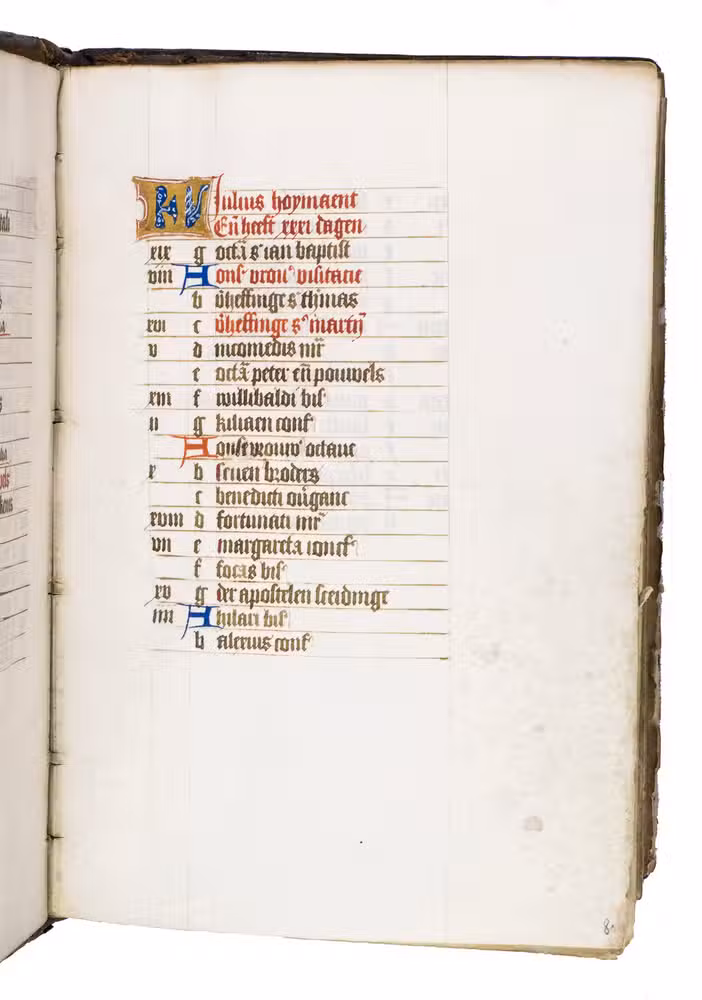 KL Iulius hoymaent
En heeft xxxi dagen
xix g octa s ian baptist
viii A ons vrou visitatie
b v'heffinge s thomas
xvi c v'heffinge s martyn
v d nicomedis mr
e octa peter en pouwels
xiii f willibaldi bis
ii g kiliaen conf
A onse vrouw octave
x b seven broders
c benedicti ov'ganc
xviii d fortunati mr
vii e margareta ioncf
f focas bis
xv g der apostelen sceidinge
iiii A hilari bis
b alexius conf
8